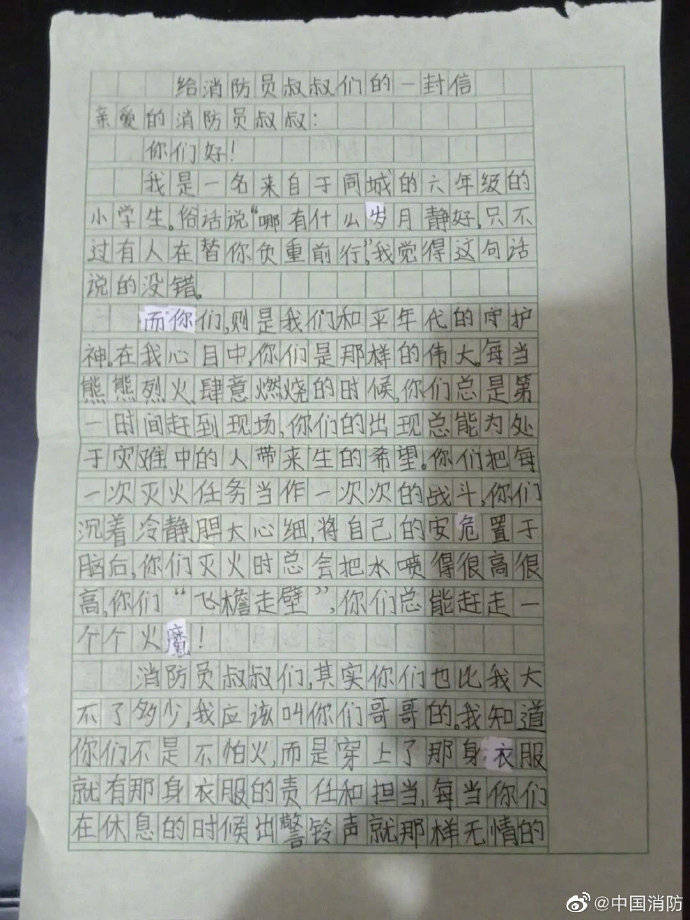 给消防员叔叔们的一封信
亲爱的消防员叔叔:
你们好!
我是一名来自于同城的六年级的
小学生。俗话说“哪有什么岁月静好,只不
过有人在替你负重前行,”我觉得这句话
说的没错。
而你们,则是我们和平年代的守护
神。在我心目中,你们是那样的伟大。每当
熊熊烈火,肆意燃烧的时候,你们总是第
一时间赶到现场,你们的出现总能为处
于灾难中的人带来生的希望。你们把每
一次灭火任务当作一次次的战斗,你们
沉着冷静,胆大心细,将自己的安危置于
脑后,你们灭火时总会把水喷得很高很
高,你们“飞檐走壁”,你们总能赶走一
个个火魔!
消防员叔叔们,其实你们也比我大
不了多少,我应该叫你们哥哥的。我知道
你们不是不怕火,而是穿上了那身衣服
就有那身衣服的责任和担当,每当你们
在休息的时候出警铃声就那样无情的
@中国消防